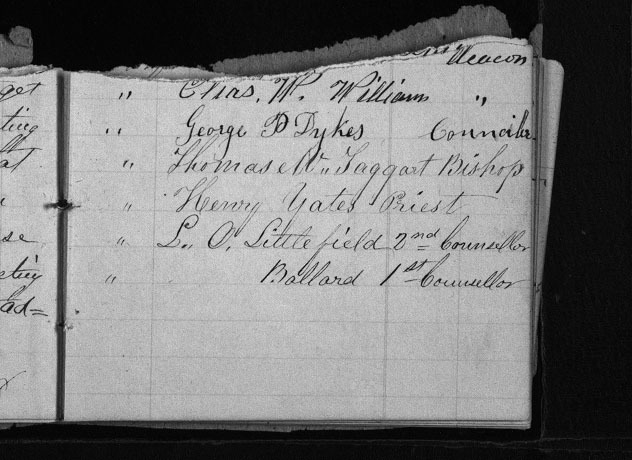 get
ting
at
se
eting
ad=
Deacon
" Chas. W. William "
" George P Dykes Counciller
" Thomas W. Taggart Bishop
" Henry Yates Priest
" L. O. Littlefield 2nd Counsellor
" Ballard 1st Counsellor